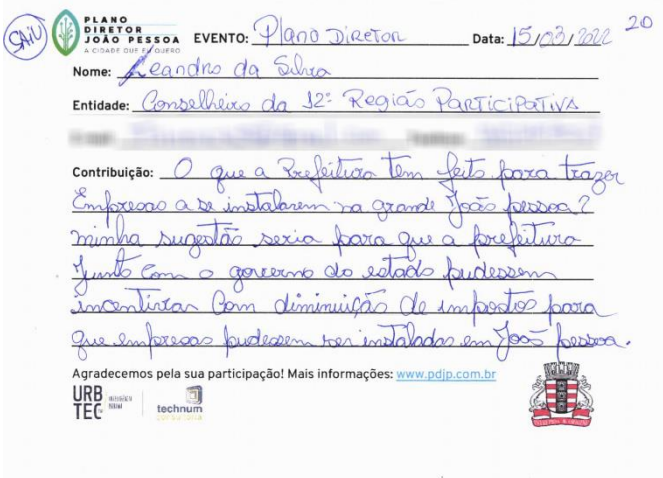 SAIU
PLANO
DIRETOR
JOÃO PESSOA
A CIDADE QUE EU QUERO
EVENTO: Plano Diretor Data: 15/03/2022 20
Nome: Leandro da Silva
Entidade: Conselheiro da 12ª Região Participativa
Contribuição: O que a Prefeitura tem feito para trazer
Empresas a se instalarem na grande João pessoa?
minha sugestão seria para que a prefeitura
Junto com o governo do estado pudessem
incentivar com diminuição de impostos para
que empresas pudessem ser instaladas em João pessoa.
Agradecemos pela sua participação! Mais informações: www.pdjp.com.br
URB
TEC
technum
consultoria